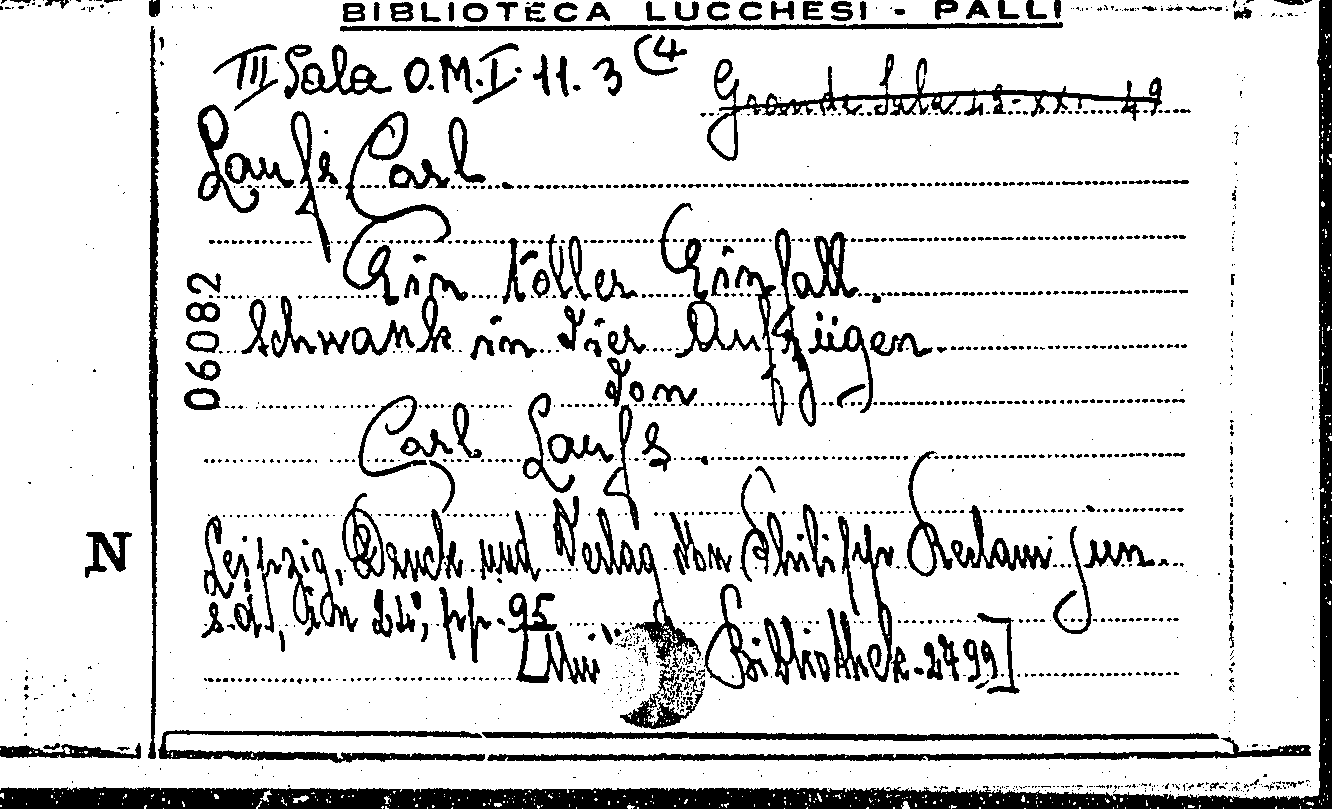 BIBLIOTECA LUCCHESI - PALLI
III Sala O.M.I. 11. 3 (4
Grande Sala 42-XXI- 49
Laufs Carl.
Ein toller Einfall.
Schwank in vier Aufzügen.
von
Carl Laufs.
Leipzig, Druck und Verlag von Philipp Reclam jun.
s.d., in 24°, pp. 95
[Bibliothek. 2799]
06082
N